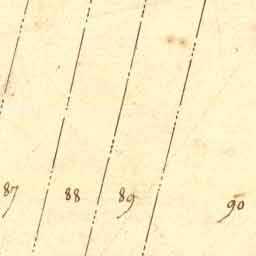 87 88 89 90